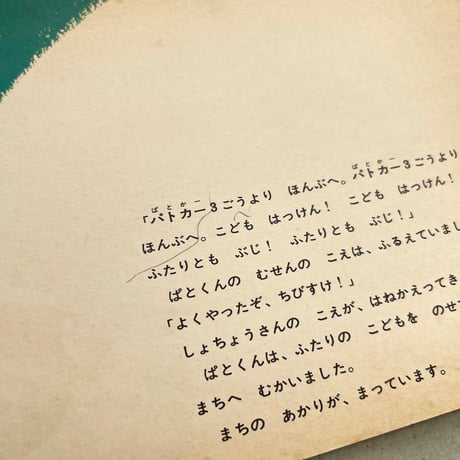 「パトカー3ごうより ほんぶへ。パトカー3ごうより
ほんぶへ。こども はっけん! こども はっけん!
ふたりとも ぶじ! ふたりとも ぶじ!」
ぱとくんの むせんの こえは、ふるえていまし
「よくやったぞ、ちびすけ!」
しょちょうさんの こえが、はねかえってき
ぱとくんは、ふたりの こどもを のせ
まちへ むかいました。
まちの あかりが、まっています。